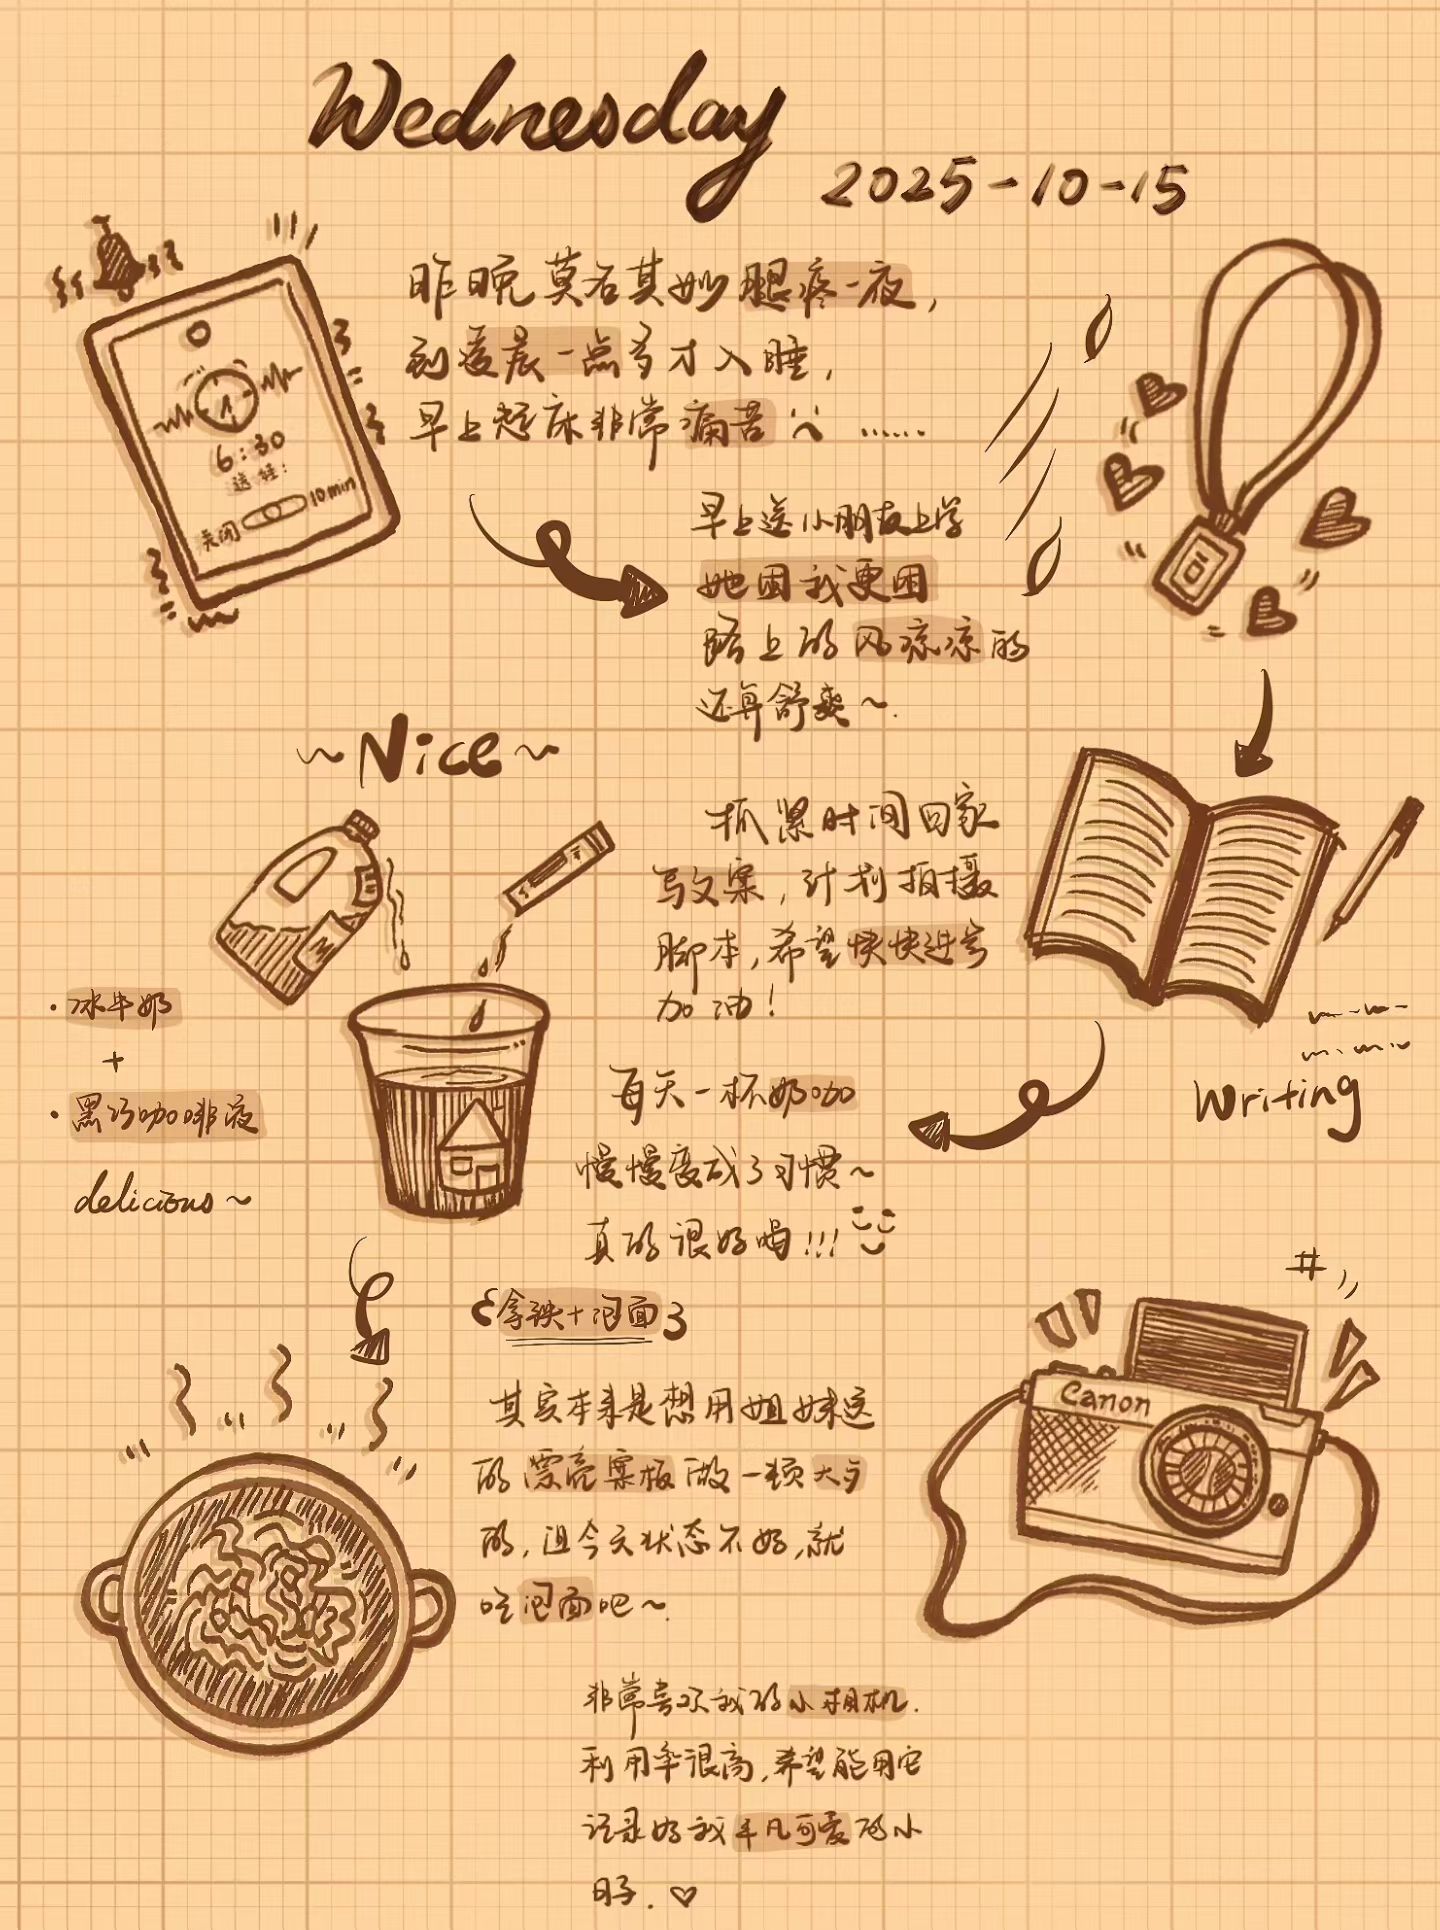 Wednesday
2025-10-15
昨晚莫名其妙腿疼一夜,
到凌晨一点多才入睡,
早上起床非常痛苦 ……
6:30
送娃!
关闭 10min
早上送小朋友上学
她困我更困
路上的风凉凉的
还算舒爽~.
~Nice~
抓紧时间回家
写文案,计划拍摄
脚本,希望快快进步
加油!
Writing
·冰牛奶
+
·黑巧咖啡液
delicious~
每天一杯奶咖
慢慢变成了习惯~
真的很好喝!!!
{拿铁+泡面}
其实本来是想用姐妹送
的漂亮案板做一顿大餐
的,但今天状态不好,就
吃泡面吧~.
#
Canon
非常喜欢我的小相机.
利用率很高,希望能用它
记录好我平凡可爱的小
日子.♡